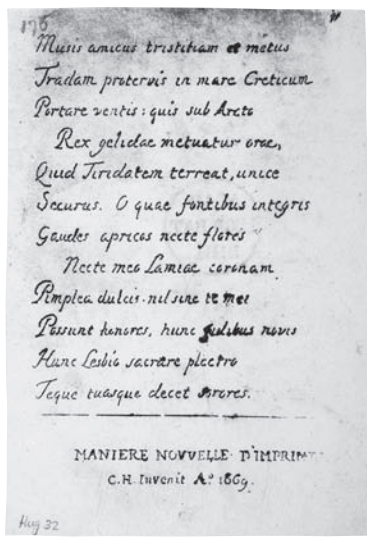 176
Musis amicus tristitiam et metus
Tradam protervis in mare Creticum
Portare ventis: quis sub Arcto
Rex gelidae metuatur orae,
Quid Tiridatem terreat, unice
Securus. O quae fontibus integris
Gaudes apricos necte flores
Necte meo Lamiae coronam
Pimplea dulcis. nil sine te mei
Possunt honores, hunc fidibus novis
Hunc Lesbio sacrare plectro
Teque tuasque decet sorores.
MANIERE NOVVELLE D'IMPRIM
C.H. Invenit A.º 1669.
Hug 32